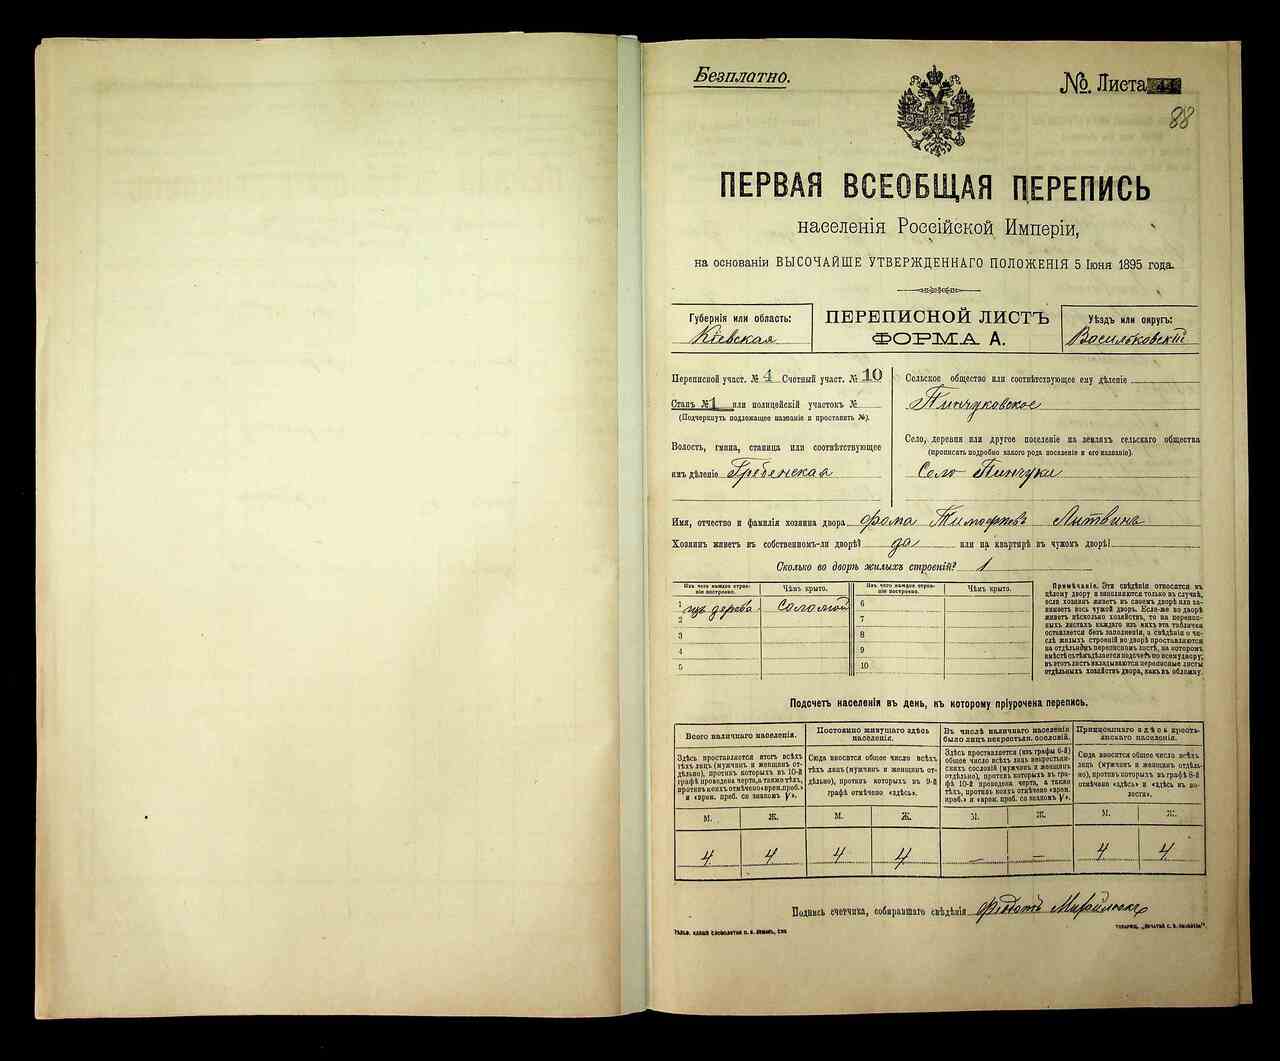 Безплатно.
№ Листа 44
88
ПЕРВАЯ ВСЕОБЩАЯ ПЕРЕПИСЬ
населенія Россійской Имперіи,
на основаніи ВЫСОЧАЙШЕ УТВЕРЖДЕННАГО ПОЛОЖЕНІЯ 5 Іюня 1895 года.
Губернія или область:
Кіевская
ПЕРЕПИСНОЙ ЛИСТЪ
ФОРМА А.
Уѣздъ или округъ:
Васильковскій
Переписной участ. № 4 Счетный участ. № 10
Станъ № 1 или полицейскій участокъ №
(Подчеркнуть подлежащее названіе и проставить №).
Волость, гмина, станица или соотвѣтствующее
имъ дѣленіе Гребенская
Сельское общество или соотвѣтствующее ему дѣленіе
Пинчуковское
Село, деревня или другое поселеніе на земляхъ сельскаго общества
(прописать подробно какого рода поселеніе и его названіе).
Село Пинчуки
Имя, отчество и фамилія хозяина двора Фома Тимофѣевъ Литвинъ
Хозяинъ живетъ въ собственномъ-ли дворѣ? да или на квартирѣ въ чужомъ дворѣ?
Сколько во дворѣ жилыхъ строеній? 1
Изъ чего каждое строеніе построено.
Чѣмъ крыто.
Изъ чего каждое строеніе построено.
Чѣмъ крыто.
1 изъ дерева соломой 6
2 7
3 8
4 9
5 10
Примѣчаніе. Эти свѣдѣнія относятся къ
цѣлому двору и заполняются только въ случаѣ,
если хозяинъ живетъ въ своемъ дворѣ или за-
нимаетъ весь чужой дворъ. Если-же во дворѣ
живетъ нѣсколько хозяйствъ, то на перепис-
ныхъ листахъ каждаго изъ нихъ эта табличка
оставляется безъ заполненія, а свѣдѣнія о чи-
слѣ жилыхъ строеній во дворѣ проставляются
на отдѣльномъ переписномъ листѣ, на которомъ
вмѣстѣ съ тѣмъ дѣлается подсчетъ по всему двору;
въ этотъ листъ вкладываются переписные листы
отдѣльныхъ хозяйствъ двора, какъ въ обложку.
Подсчетъ населенія въ день, къ которому пріурочена перепись.
Всего наличнаго населенія.
Здѣсь проставляется итогъ всѣхъ
тѣхъ лицъ (мужчинъ и женщинъ от-
дѣльно), противъ которыхъ въ 10-й
графѣ проведена черта, а также тѣхъ,
противъ коихъ отмѣчено «врем. преб.»
и «врем. преб. со знакомъ V».
Постоянно живущаго здѣсь
населенія.
Сюда вносится общее число всѣхъ
тѣхъ лицъ (мужчинъ и женщинъ от-
дѣльно), противъ которыхъ въ 9-й
графѣ отмѣчено «здѣсь».
Въ числѣ наличнаго населенія
было лицъ некрестьян. сословій.
Здѣсь проставляется (изъ графы 6-й)
общее число всѣхъ лицъ некрестьян-
скихъ сословій (мужчинъ и женщинъ
отдѣльно), противъ которыхъ въ гра-
фѣ 10-й проведена черта, а также
тѣхъ, противъ коихъ отмѣчено «врем.
преб.» и «врем. преб. со знакомъ V».
Приписаннаго здѣсь кресть-
янскаго населенія.
Сюда вносится общее число всѣхъ
лицъ (мужчинъ и женщинъ отдѣль-
но), противъ которыхъ въ графѣ 8-й
отмѣчено «здѣсь» и «здѣсь въ во-
лости».
М. Ж. М. Ж. М. Ж. М. Ж.
4 4 4 4 — — 4 4
Подпись счетчика, собиравшаго свѣдѣнія Федотъ